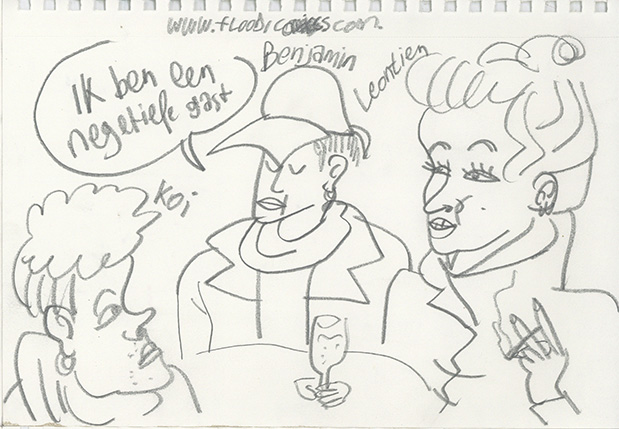 www.floodicomics.com
Benjamin
Leontien
Ik ben een
negetiefe gast
Koi